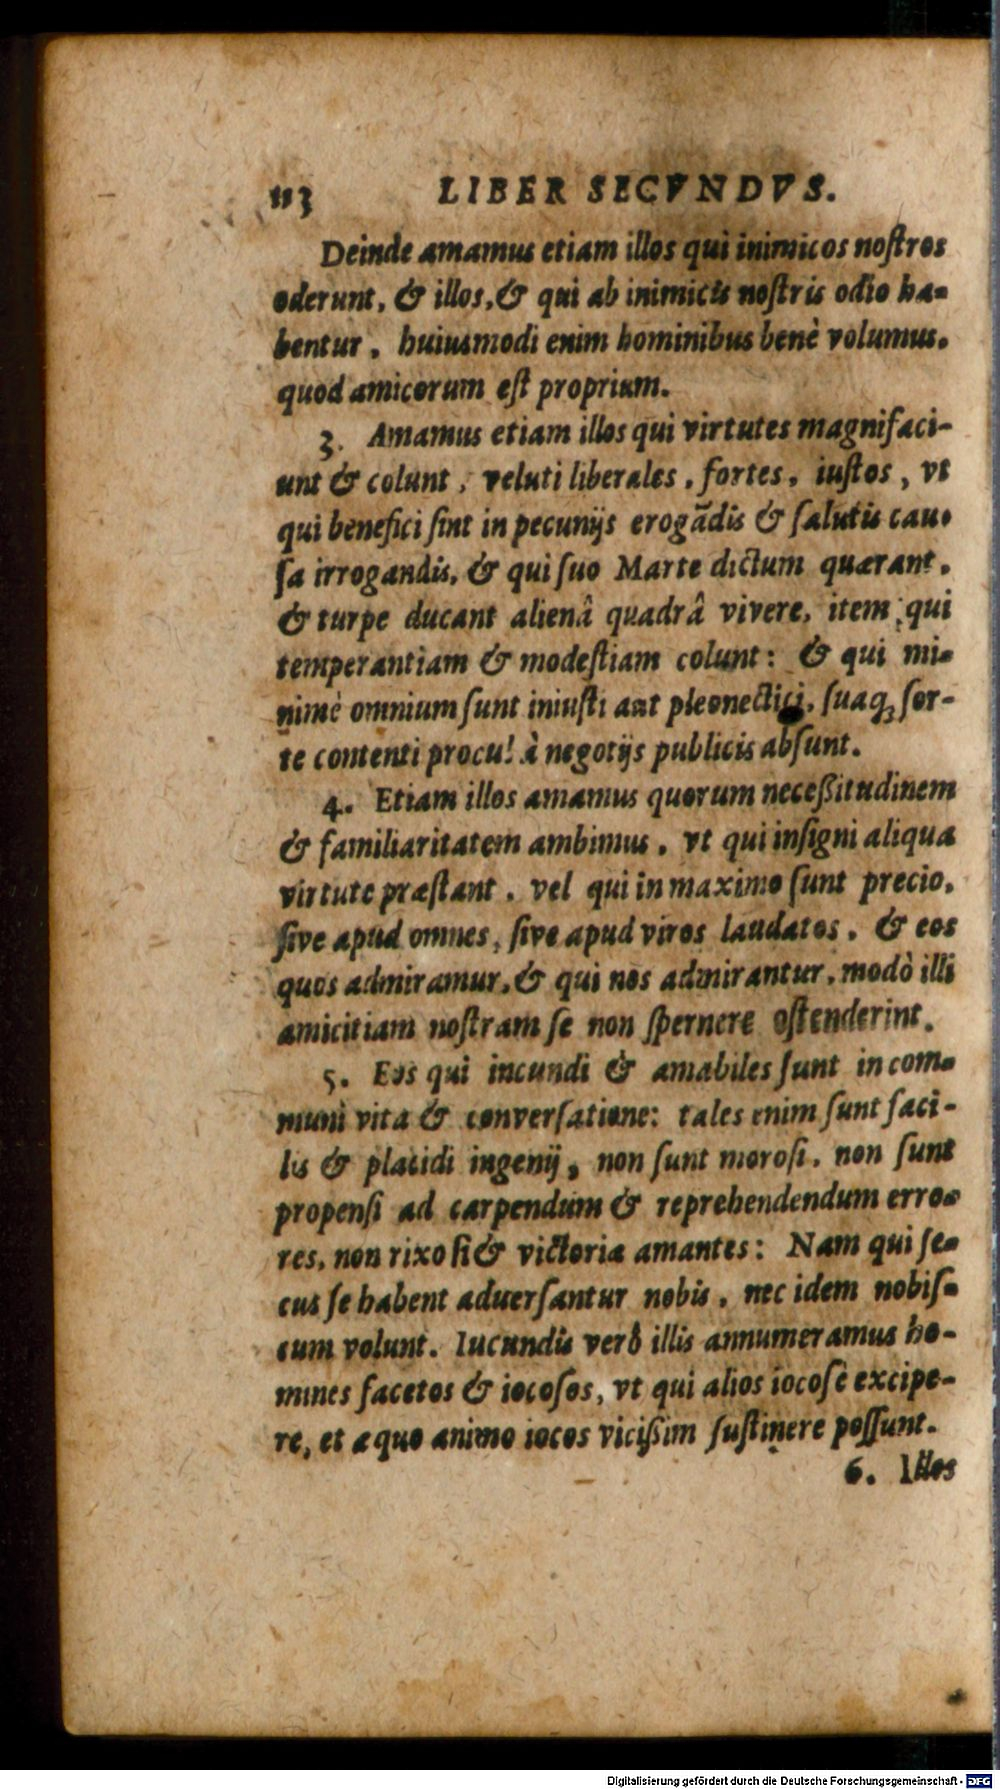 113 LIBER SECVNDVS.
Deinde amamus etiam illos qui inimicos nostros
oderunt, & illos, & qui ab inimicis nostris odio ha-
bentur, huiusmodi enim hominibus benè volumus,
quod amicorum est proprium.
3. Amamus etiam illos qui virtutes magnifaci-
unt & colunt, veluti liberales, fortes, iustos, vt
qui benefici sint in pecunijs erogādis & salutis cau-
sa irrogandis, & qui suo Marte dictum quærant,
& turpe ducant alienâ quadrâ vivere, item, qui
temperantiam & modestiam colunt: & qui mi-
nimè omnium sunt iniusti aut pleonectici, suaq; sor-
te contenti procul à negotijs publicis absunt.
4. Etiam illos amamus quorum necessitudinem
& familiaritatem ambimus, vt qui insigni aliqua
virtute præstant, vel qui in maximo sunt precio,
sive apud omnes, sive apud viros laudatos, & eos
quos admiramur, & qui nos admirantur, modò illi
amicitiam nostram se non spernere ostenderint.
5. Eos qui iucundi & amabiles sunt in com-
muni vita & conversatione: tales enim sunt faci-
lis & placidi ingenij, non sunt morosi, non sunt
propensi ad carpendum & reprehendendum erro-
res, non rixosi & victoriæ amantes: Nam qui se-
cus se habent aduersantur nobis, nec idem nobis-
cum volunt. Iucundis verò illis annumeramus ho-
mines facetos & iocosos, vt qui alios iocosè excipe-
re, et æquo animo iocos vicissim sustinere possunt.
6. Illos
Digitalisierung gefördert durch die Deutsche Forschungsgemeinschaft - DFG